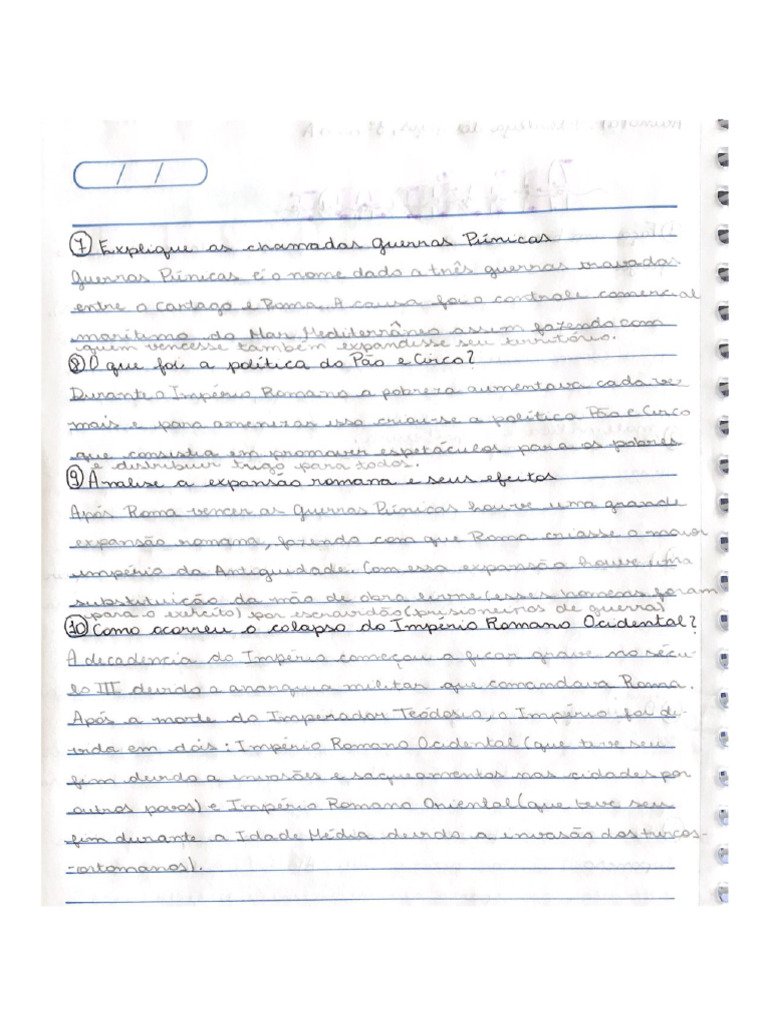 7 Explique as chamadas Guerras Púnicas
Guerras Púnicas é o nome dado a três guerras travadas
entre a Cartago e Roma. A causa foi o controle comercial
marítimo do Mar Mediterrâneo assim fazendo com
quem vencesse também expandesse seu território.
8 O que foi a política do Pão e Circo?
Durante o Império Romano a pobreza aumentava cada vez
mais e para amenizar isso criou-se a política Pão e Circo
que consistia em promover espetáculos para os pobres
e distribuir trigo para todos.
9 Analise a expansão romana e seus efeitos
Após Roma vencer as Guerras Púnicas houve uma grande
expansão romana, fazendo com que Roma criasse o maior
império da Antiguidade. Com essa expansão houve uma
substituição da mão de obra livre (esses homens foram
para o exército) por escravidão (prisioneiros de guerra)
10 Como ocorreu o colapso do Império Romano Ocidental?
A decadencia do Império começou a ficar grave no sécu-
lo III devido a anarquia militar que comandava Roma.
Após a morte do Imperador Teódosio, o Império foi di-
vida em dois: Império Romano Ocidental (que teve seu
fim devido a invasões e saqueamentos nas cidades por
outros povos) e Império Romano Oriental (que teve seu
fim durante a Idade Média devido a invasão dos turcos-
-ortomanos).